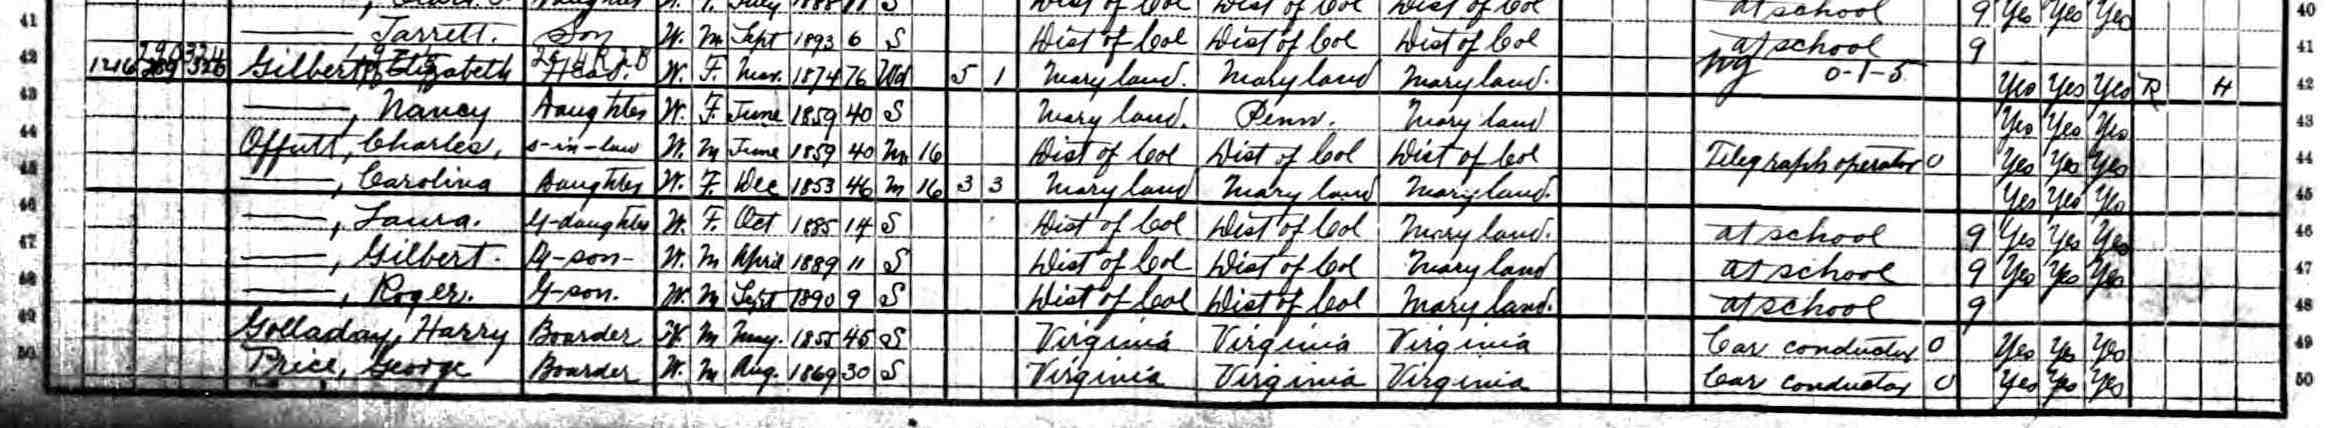 Daughter W. F. July 1888 11 S Dist of Col Dist of Col Dist of Col at school 9 Yes Yes Yes 40
41 ———, Jarrett. Son W. M Sept 1893 6 S Dist of Col Dist of Col Dist of Col at school 9 41
42 1216 Gilbert, Elizabeth Head. W. F. Mar. 1874 76 Wd 5 1 Maryland. Maryland Maryland. 0-1-5 Yes Yes Yes R H 42
43 ———, Nancy Daughter W. F. June 1859 40 S Maryland. Penn. Maryland Yes Yes Yes 43
44 Offutt, Charles, s-in-law W. M June 1859 40 M 16 Dist of Col Dist of Col Dist of Col Telegraph operator 0 Yes Yes Yes 44
45 ———, Carolina Daughter W. F. Dec 1853 46 M 16 3 3 Maryland Maryland Maryland. Yes Yes Yes 45
46 ———, Laura. G-daughter W. F. Oct 1885 14 S Dist of Col Dist of Col Maryland. at school 9 Yes Yes Yes 46
47 ———, Gilbert. G-son- W. M April 1889 11 S Dist of Col Dist of Col Maryland at school 9 Yes Yes Yes 47
48 ———, Roger. G-son. W. M Sept 1890 9 S Dist of Col Dist of Col Maryland. at school 9 48
49 Golladay, Harry Boarder W. M May. 1855 45 S Virginia Virginia Virginia Car conductor 0 Yes Yes Yes 49
50 Price, George Boarder W. M Aug. 1869 30 S Virginia Virginia Virginia Car conductor 0 Yes Yes Yes 50